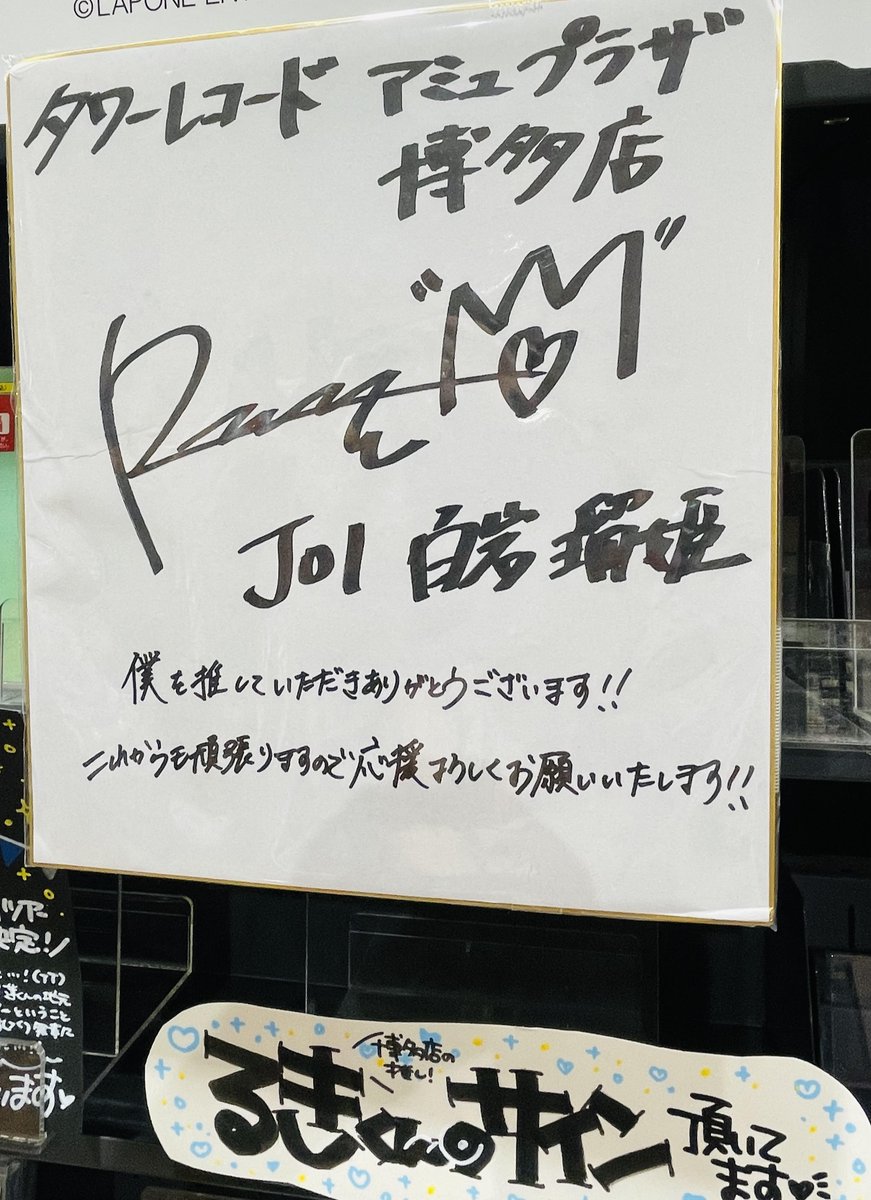 ©LAPONE
タワーレコード アミュプラザ
博多店
JO1 白岩瑠姫
僕を推していただきありがとうございます!!
これからも頑張りますので応援よろしくお願いいたします!!
ツアー
決定!
…!(TT)
くんの地元
ーということ
ます
博多店の
推し!
るきくんのサイン
頂いて
ます